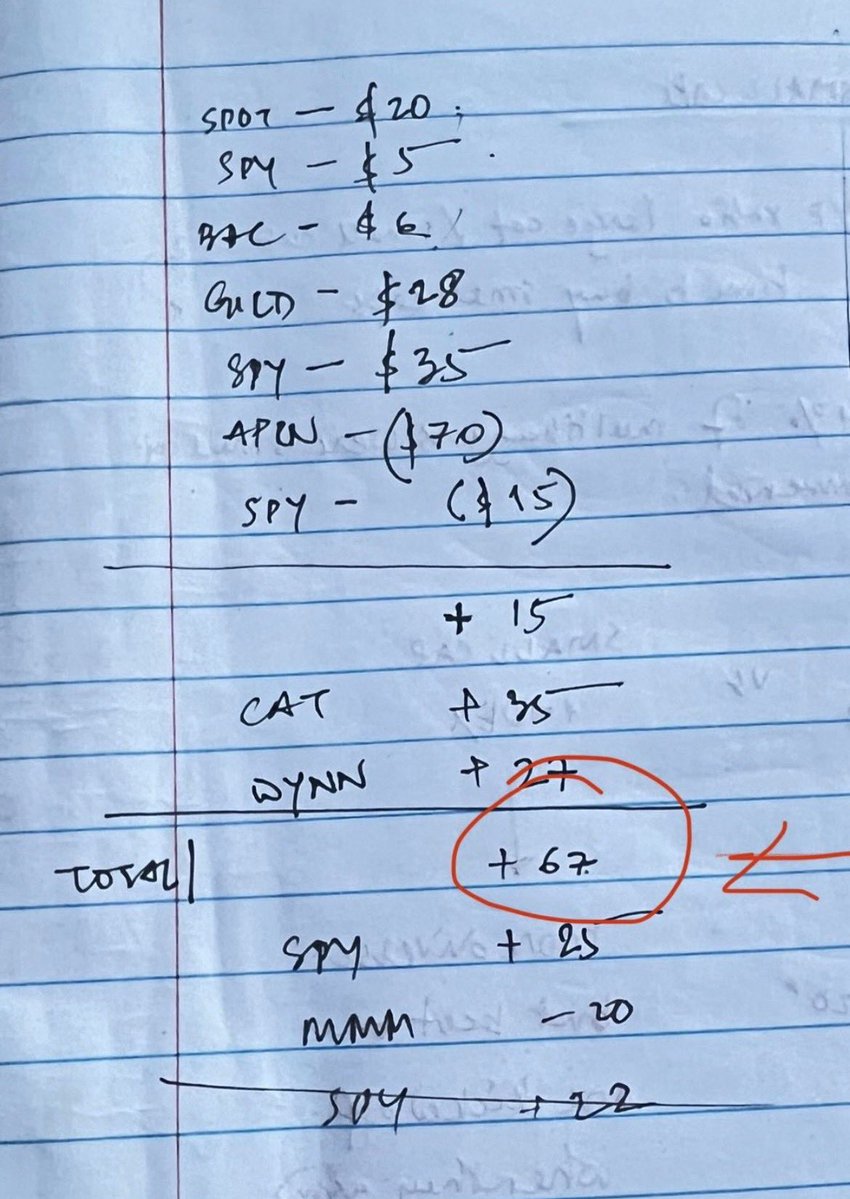 SPOT - $20;
SPY - $5
BAC - $6
GILD - $28
SPY - $35
APLN - ($70)
SPY - ($15)
+ 15
CAT + 35
WYNN + 27
TOTAL + 67
SPY + 25
MMM - 20
SPY + 22